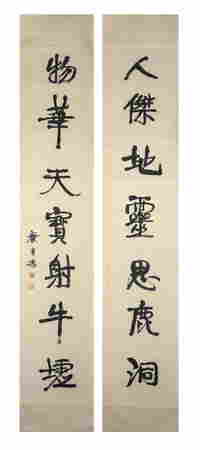 人傑地靈思鹿洞
物華天寶射牛墟